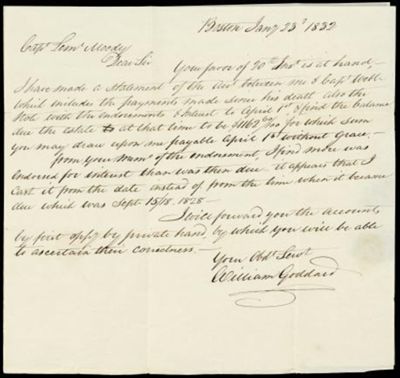 Boston Jany 23d 1832
Capt Leml Moody
Dear Sir
Your favor of 20th Inst is at hand,
I have made a statement of the acct between me & Capt Webb
which includes the payments made since his death also the
Note with the endorsements & Interest to April 1st & find the balance
due the estate at that time to be for which sum
you may draw upon me payable April 1st without grace.
From your Memo of the endorsement, I find more was
endorsed for interest than was then due. it appears that I
cast it from the date instead of from the time when it became
due which was Sept 15/18. 1828
I will forward you the accounts,
by first oppy by private hand, by which you will be able
to ascertain their correctness
Your Obdt Servt
William Goddard